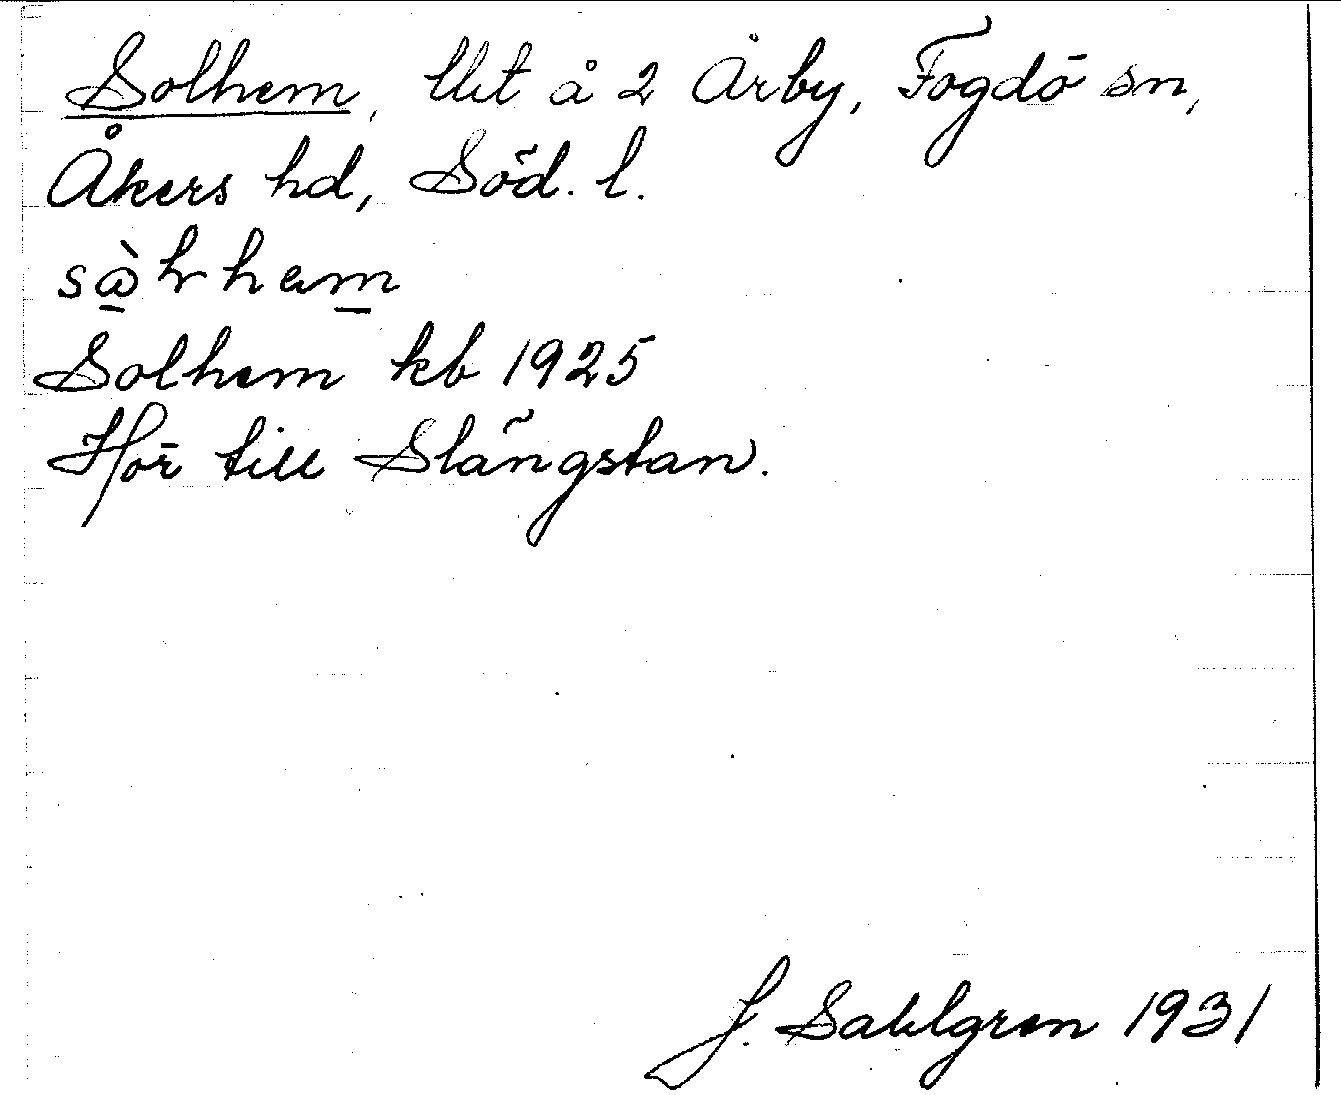 Solhem, lht å 2 Årby, Fogdö sn,
Åkers hd, Söd. l.
Solhem kb 1925
Hör till Slängstan.
J. Sahlgren 1931